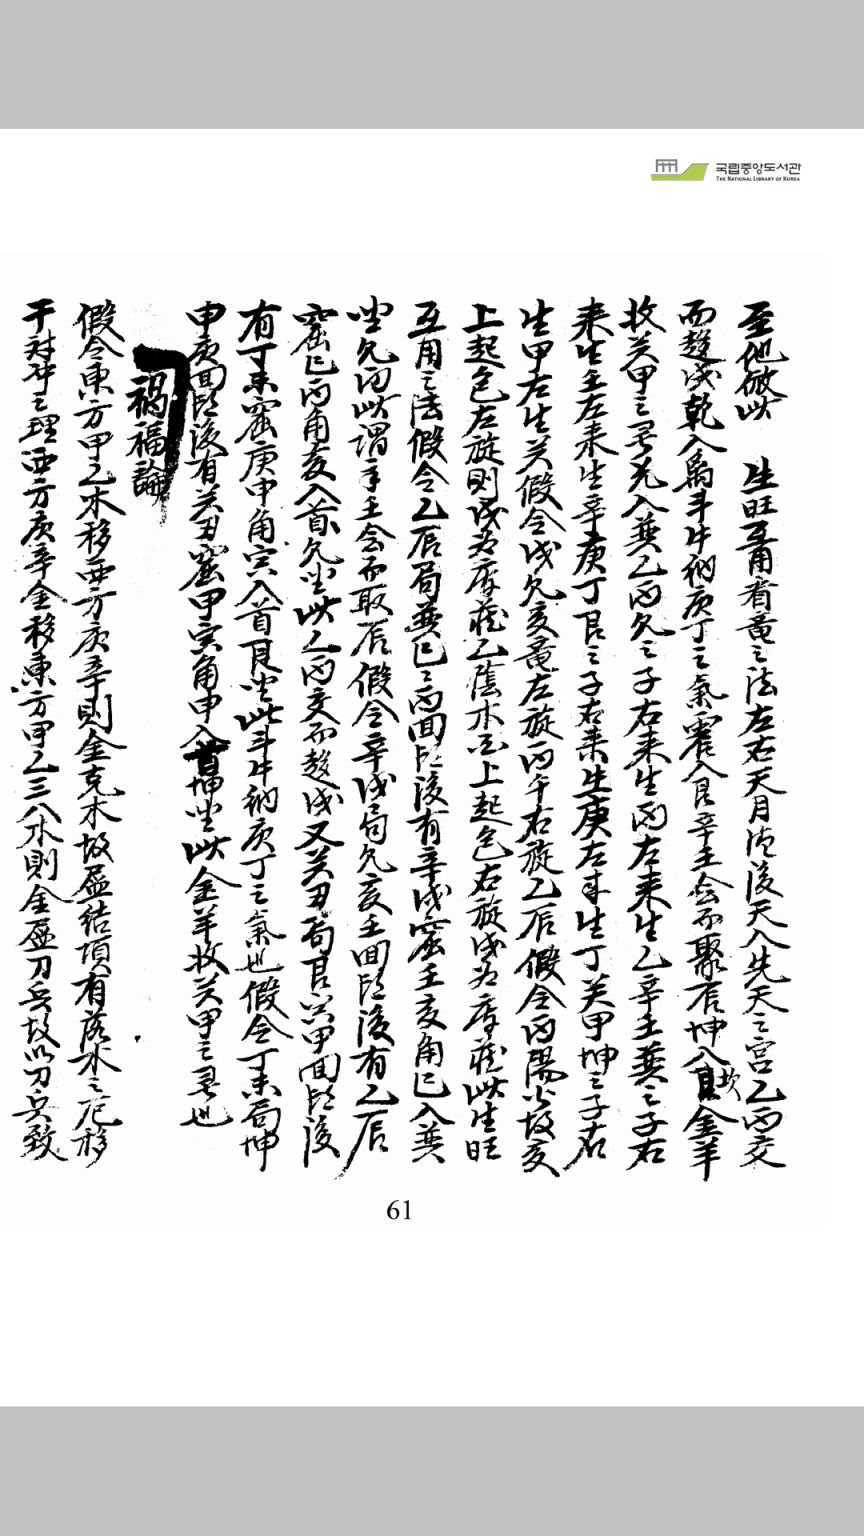 국립중앙도서관
THE NATIONAL LIBRARY OF KOREA
至他倣此 生旺互用看竜之法左右天月 後天入先天之宮乙丙交
而趍戌乾入 斗牛納庚丁之氣震入艮辛壬会而聚辰坤入坎金羊
收癸甲之灵兌入巽乙丙 之子右来生丙左来生乙辛壬巽之子右
来生壬左来生辛庚丁艮之子右来生庚左来生丁癸甲坤之子右
生甲左生癸假令戌 亥竜左旋丙午右旋乙辰假令丙陽火故亥
上起 左旋則戌为库藏乙陰木 上起 右旋戌为库藏此生旺
互用之法假令乙辰局巽巳之丙回 後有辛戌窟壬亥角巳入巽
坐 向此謂辛壬会而取辰假令辛戌局 亥壬回 後有乙辰
窟巳丙角亥入首 坐此乙丙交而趍戌又癸丑局艮寅甲回 後
有丁未窟庚申角寅入首艮坐此斗牛納庚丁之氣也假令丁未局坤
申庚回 後有癸丑窟甲寅角申入首坤坐此金羊收癸甲之灵也
禍福論
假令東方甲乙木移西方庚辛則金克木故 結項有落水之厄移
于对冲之理西方庚辛金移東方甲乙三八木則金 刀兵故以刀兵致
61